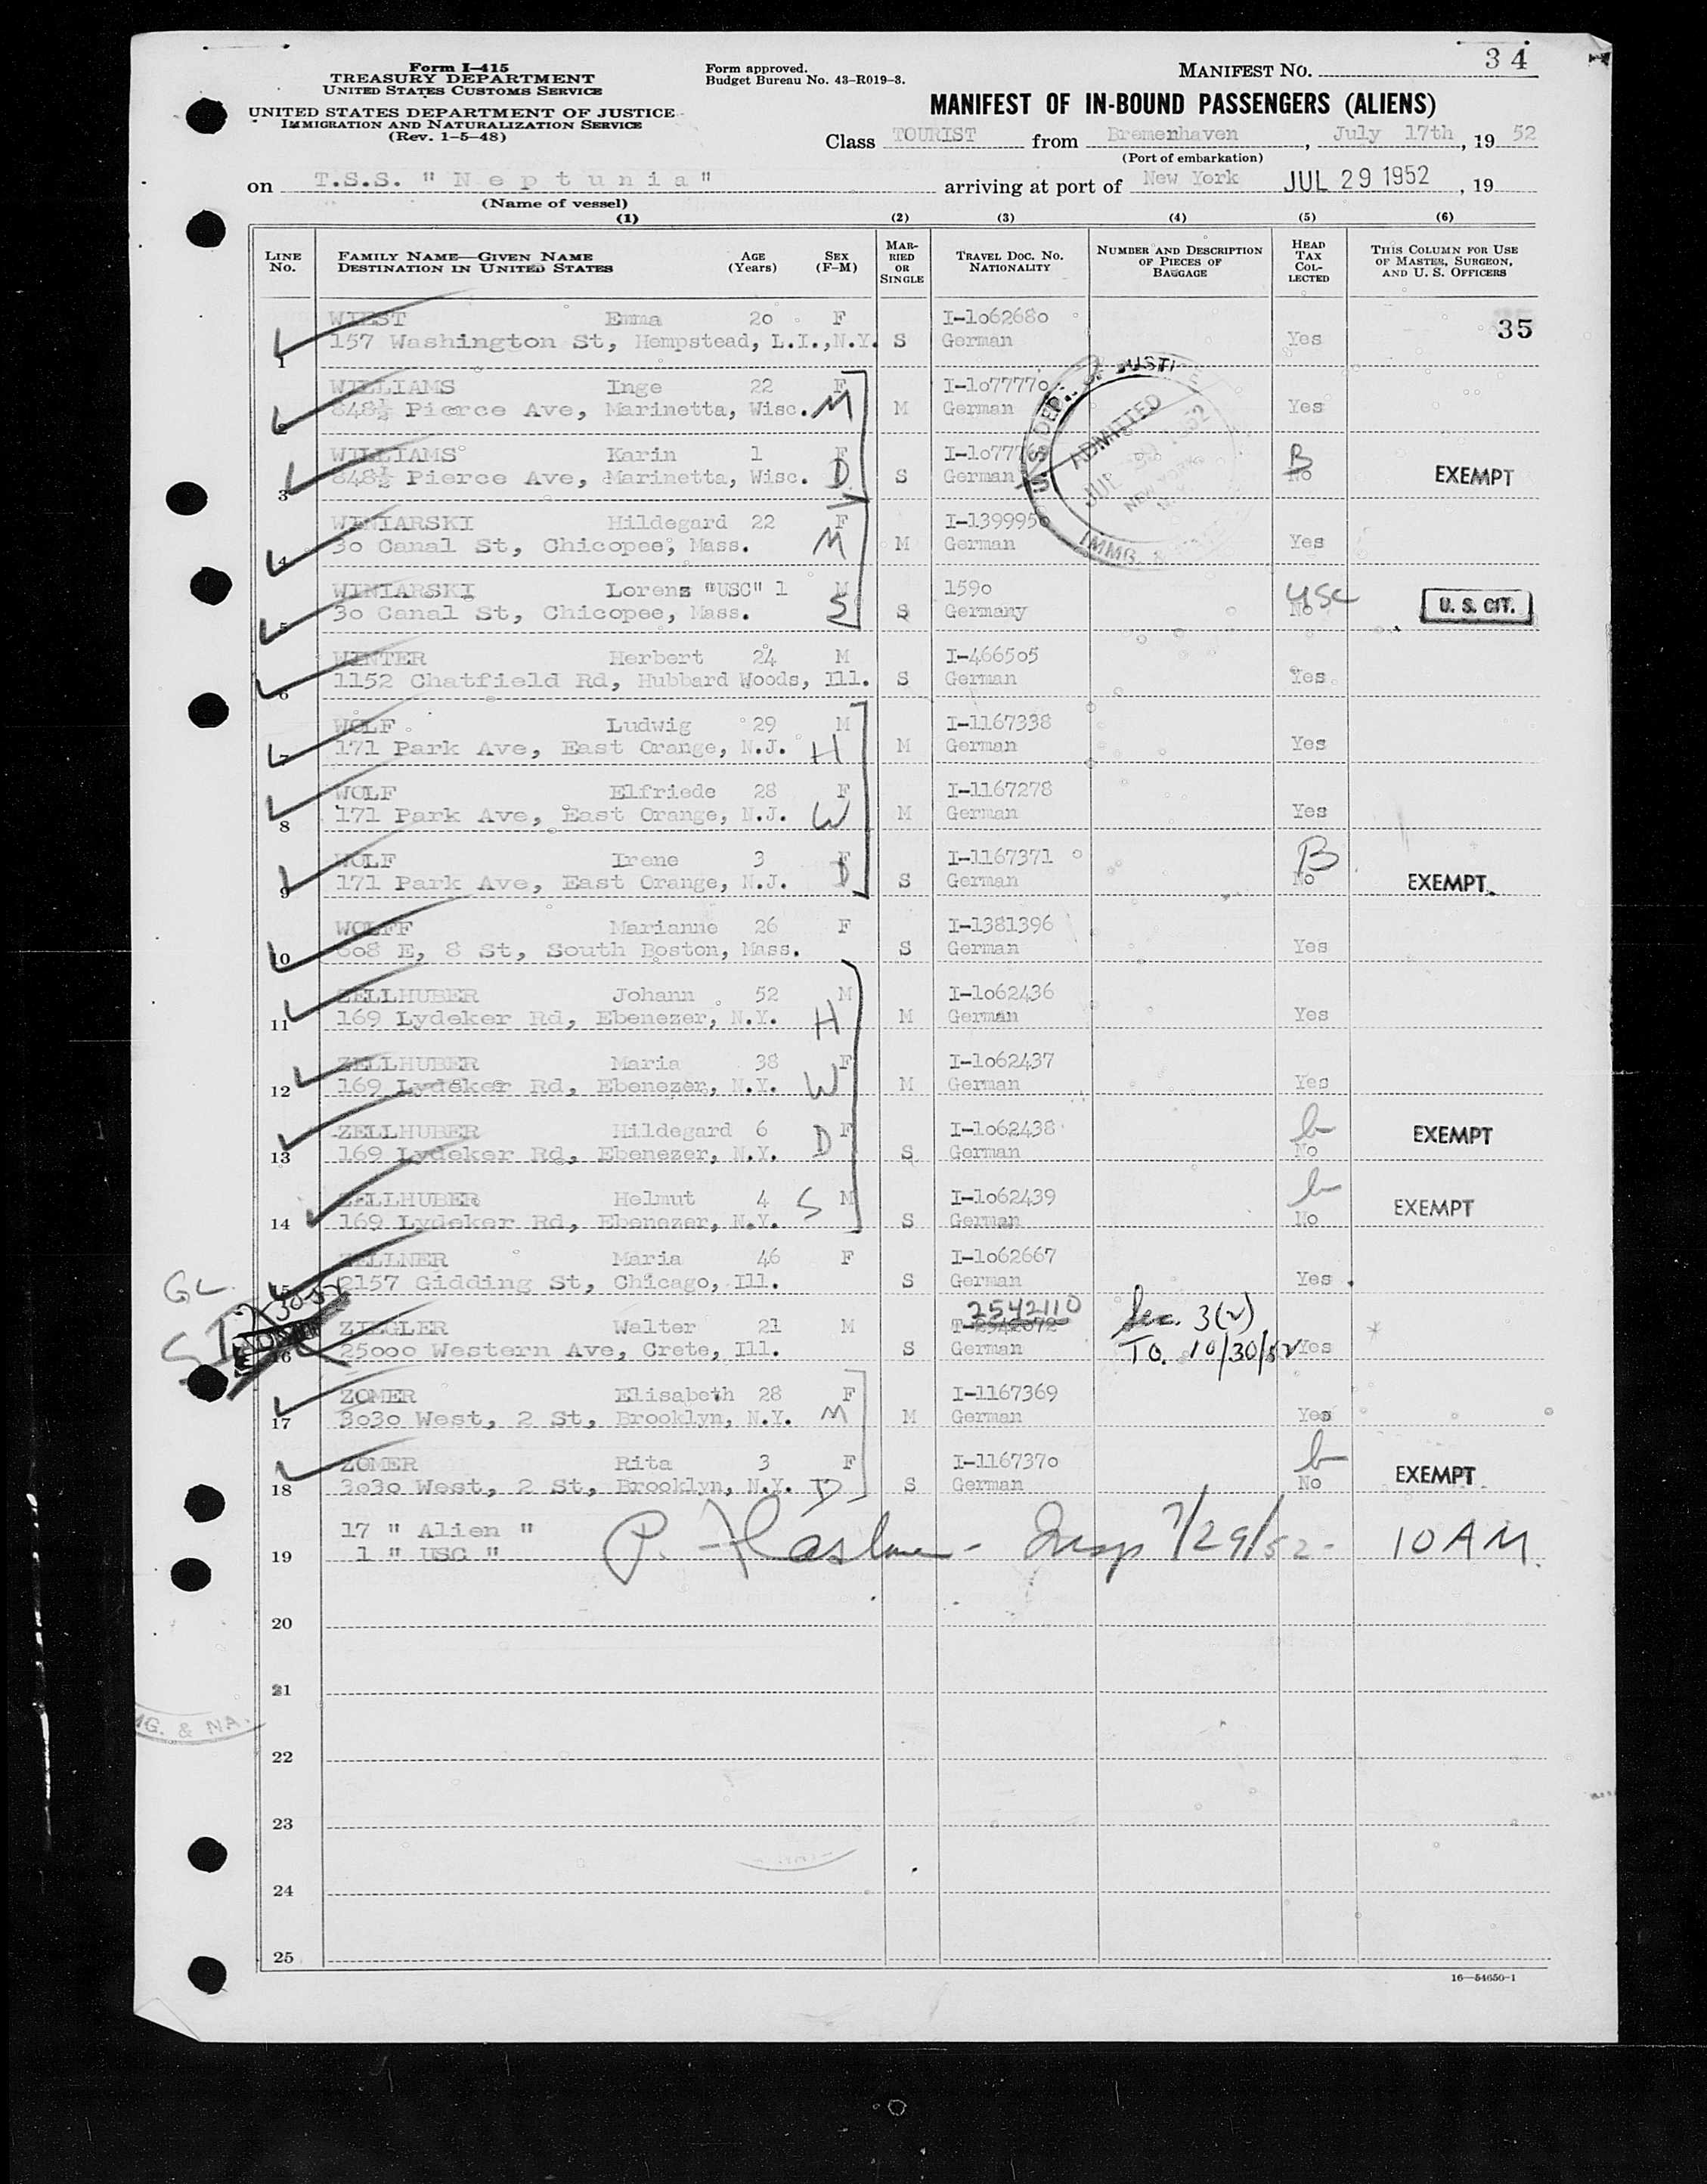 34
Form I-415
TREASURY DEPARTMENT
UNITED STATES CUSTOMS SERVICE
UNITED STATES DEPARTMENT OF JUSTICE
IMMIGRATION AND NATURALIZATION SERVICE
(Rev. 1-5-48)
Form approved.
Budget Bureau No. 43-R019-3.
MANIFEST NO.
MANIFEST OF IN-BOUND PASSENGERS (ALIENS)
Class TOURIST from Bremenhaven, July 17th, 19 52
(Port of embarkation)
on T.S.S. "Neptunia" arriving at port of New York JUL 29 1952, 19
(Name of vessel)
(1) (2) (3) (4) (5) (6)
LINE No. FAMILY NAME—GIVEN NAME DESTINATION IN UNITED STATES AGE (Years) SEX (F-M) MARRIED OR SINGLE TRAVEL DOC. NO. NATIONALITY NUMBER AND DESCRIPTION OF PIECES OF BAGGAGE HEAD TAX COLLECTED THIS COLUMN FOR USE OF MASTER, SURGEON, AND U. S. OFFICERS
35
WIEST Emma 20 F I-1062680
1 157 Washington St, Hempstead, L.I.,N.Y. S German Yes
WILLIAMS Inge 22 F I-1077770
2 848½ Pierce Ave, Marinetta, Wisc. M M German Yes
WILLIAMS Karin 1 F B
3 848½ Pierce Ave, Marinetta, Wisc. D S German No EXEMPT
U. S. DEPT. OF JUSTICE
ADMITTED
NEW YORK
IMMG. &
WINIARSKI Hildegard 22 F I-1399956
4 30 Canal St, Chicopee, Mass. M M German Yes
WINIARSKI Lorenz "USC" 1 M 1590 USC
5 30 Canal St, Chicopee, Mass. S S Germany No U. S. CIT.
WINTER Herbert 24 M I-466505
6 1152 Chatfield Rd, Hubbard Woods, Ill. S German Yes
WOLF Ludwig 29 M I-1167338
7 171 Park Ave, East Orange, N.J. H M German Yes
WOLF Elfriede 28 F I-1167278
8 171 Park Ave, East Orange, N.J. W M German Yes
WOLF Irene 3 F I-1167371 B
9 171 Park Ave, East Orange, N.J. D S German No EXEMPT
WOLFF Marianne 26 F I-1381396
10 608 E, 8 St, South Boston, Mass. S German Yes
ZELLHUBER Johann 52 M I-1062436
11 169 Lydeker Rd, Ebenezer, N.Y. H M German Yes
ZELLHUBER Maria 38 F I-1062437
12 169 Lydeker Rd, Ebenezer, N.Y. W M German Yes
ZELLHUBER Hildegard 6 F I-1062438 b
13 169 Lydeker Rd, Ebenezer, N.Y. D S German No EXEMPT
ZELLHUBER Helmut 4 S M I-1062439 b
14 169 Lydeker Rd, Ebenezer, N.Y. S German No EXEMPT
ZELLNER Maria 46 F I-1062667
15 2157 Gidding St, Chicago, Ill. S German Yes
GL
SI
2542110 Sec. 3(2)
ZIEGLER Walter 21 M T-2542072
16 25000 Western Ave, Crete, Ill. S German TO. 10/30/52 Yes
ZOMER Elisabeth 28 F I-1167369
17 3030 West, 2 St, Brooklyn, N.Y. M M German Yes
ZOMER Rita 3 F I-1167370 b
18 3030 West, 2 St, Brooklyn, N.Y. D S German No EXEMPT
17 " Alien "
19 1 " USC " P. Insp 7/29/52 - 10 AM.
20
21
22
23
24
25
MG. & NA.
16—54650-1